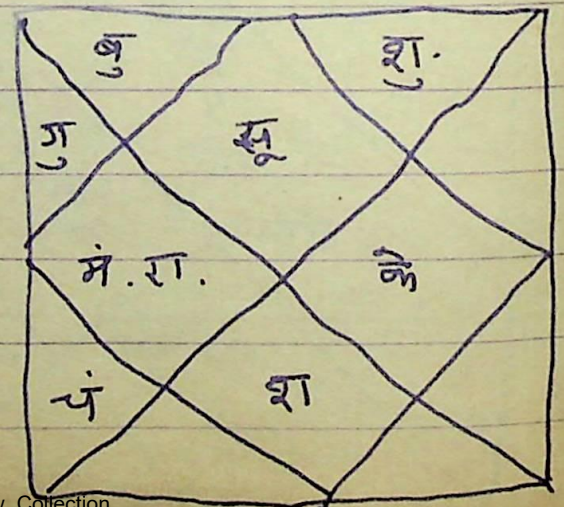 बु
शु.
गु
सू
मं. रा.
के
चं
श
Collection